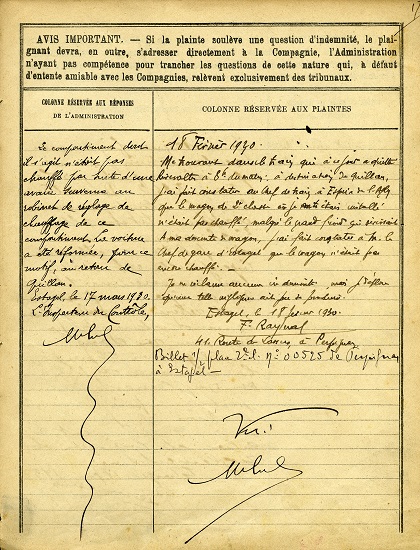 AVIS IMPORTANT. — Si la plainte soulève une question d'indemnité, le plai-
gnant devra, en outre, s'adresser directement à la Compagnie, l'Administration
n'ayant pas compétence pour trancher les questions de cette nature qui, à défaut
d'entente amiable avec les Compagnies, relèvent exclusivement des tribunaux.
COLONNE RÉSERVÉE AUX RÉPONSES
DE L'ADMINISTRATION
Le compartiment dont
il s'agit n'était pas
chauffé par suite d'une
avarie survenue au
robinet de réglage de
chauffage de ce
compartiment. La voiture
a été réformée, pour ce
motif, au retour de
Quillan.
Estagel, le 17 mars 1930.
L'Inspecteur du Contrôle,
COLONNE RÉSERVÉE AUX PLAINTES
18 Février 1930.
Me trouvant dans le train qui à ce jour a quitté
Rivesaltes à du matin, à destination de Quillan,
j'ai fait constater au Chef de train à Espira de l'Agly
que le wagon de 2e classe où je m'étais installé
n'était pas chauffé malgré le grand froid qui sévissait
A ma descente de wagon, j'ai fait constater à M. le
Chef de gare d'Estagel que le wagon n'était pas
encore chauffé. —
Je ne réclame aucune indemnité, mais
qu'une telle négligence ait pu se produire.
Estagel, le 18 février 1930.
F. Raynal
44 Route de à Perpignan
Billet place 2e cl. No 00525 de Perpignan
à Estagel —
Vu :